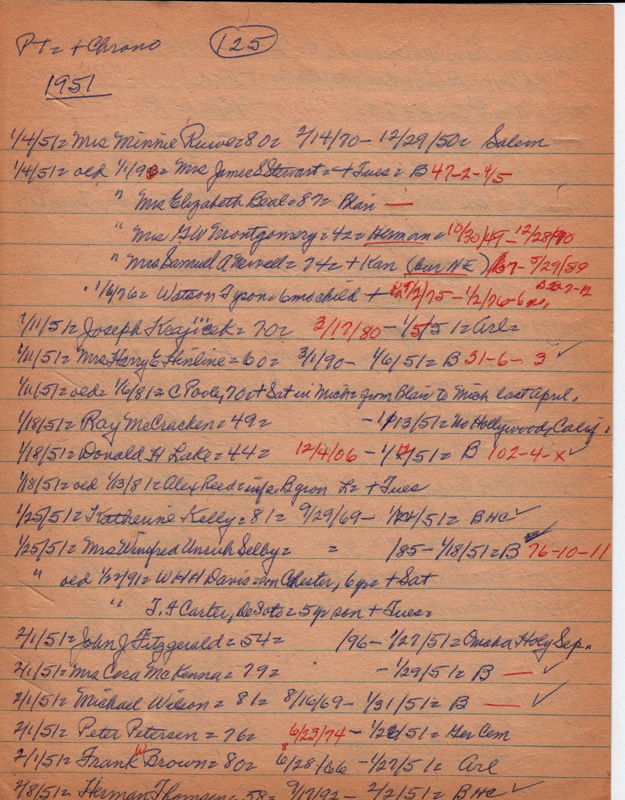 PT = + Chrono 125
1951
1/4/51 = Mrs Minnie Ruwe = 80 = 2/14/70 - 12/29/50 = Salem
1/4/51 = old 1/1/90 = Mrs James S Stewart = + Tues = B 47-2-4/5
" Mrs Elizabeth Beal = 87 = Blair —
" Mrs G W Montgomery = 42 = Herman = 10/30/49 - 12/28/90
" Mrs Samuel A Newell = 74 = + Kan (bur NE) - 5/29/89
" 1/6/76 = Watson Tyson = 6 mo child + 2/75 - 1/2/76 - 6 m
1/11/51 = Joseph Krajicek = 70 = 3/17/80 - 1/5/51 = Arl =
1/11/51 = Mrs Harry E Hinline = 60 = 3/1/90 - 1/6/51 = B 31-6-3 ✓
1/11/51 = old = 1/6/81 = C Poole, 70 = + Sat in Mich = from Blair to Mich last April.
1/18/51 = Ray McCracken = 49 = - 1/13/51 = No Hollywood, Calif.
1/18/51 = Donald H Lake = 44 = 12/4/06 - 1/12/51 = B 102-4-x ✓
1/18/51 = old 1/13/81 = Alex Reed = inf Byron L = + Tues
1/25/51 = Katherine Kelly = 81 = 9/29/69 - /51 = BHC ✓
1/25/51 = Mrs Winifred Unruh Selby = = /85 - 1/18/51 = B ✓ 76-10-11
" old 1/22/91 = W H H Davis = son Chester, 6 yr = + Sat
" T. F Carter, DeSoto = 5 yr son + Tues =
2/1/51 = John J Fitzgerald = 54 = /96 - 1/27/51 = Omaha Holy Sep.
2/1/51 = Mrs Cora McKenna = 79 = - 1/29/51 = B — ✓
2/1/51 = Michael Wilson = 81 = 8/16/69 - 1/31/51 = B — ✓
2/1/51 = Peter Petersen = 76 = 6/23/74 - 1/26/51 = Ger Cem
2/1/51 = Frank W Brown = 80 = 6/28/66 - 1/27/51 = Arl
2/8/51 = Herman Thomsen = 58 = 9/17/92 - 2/2/51 = BHC ✓